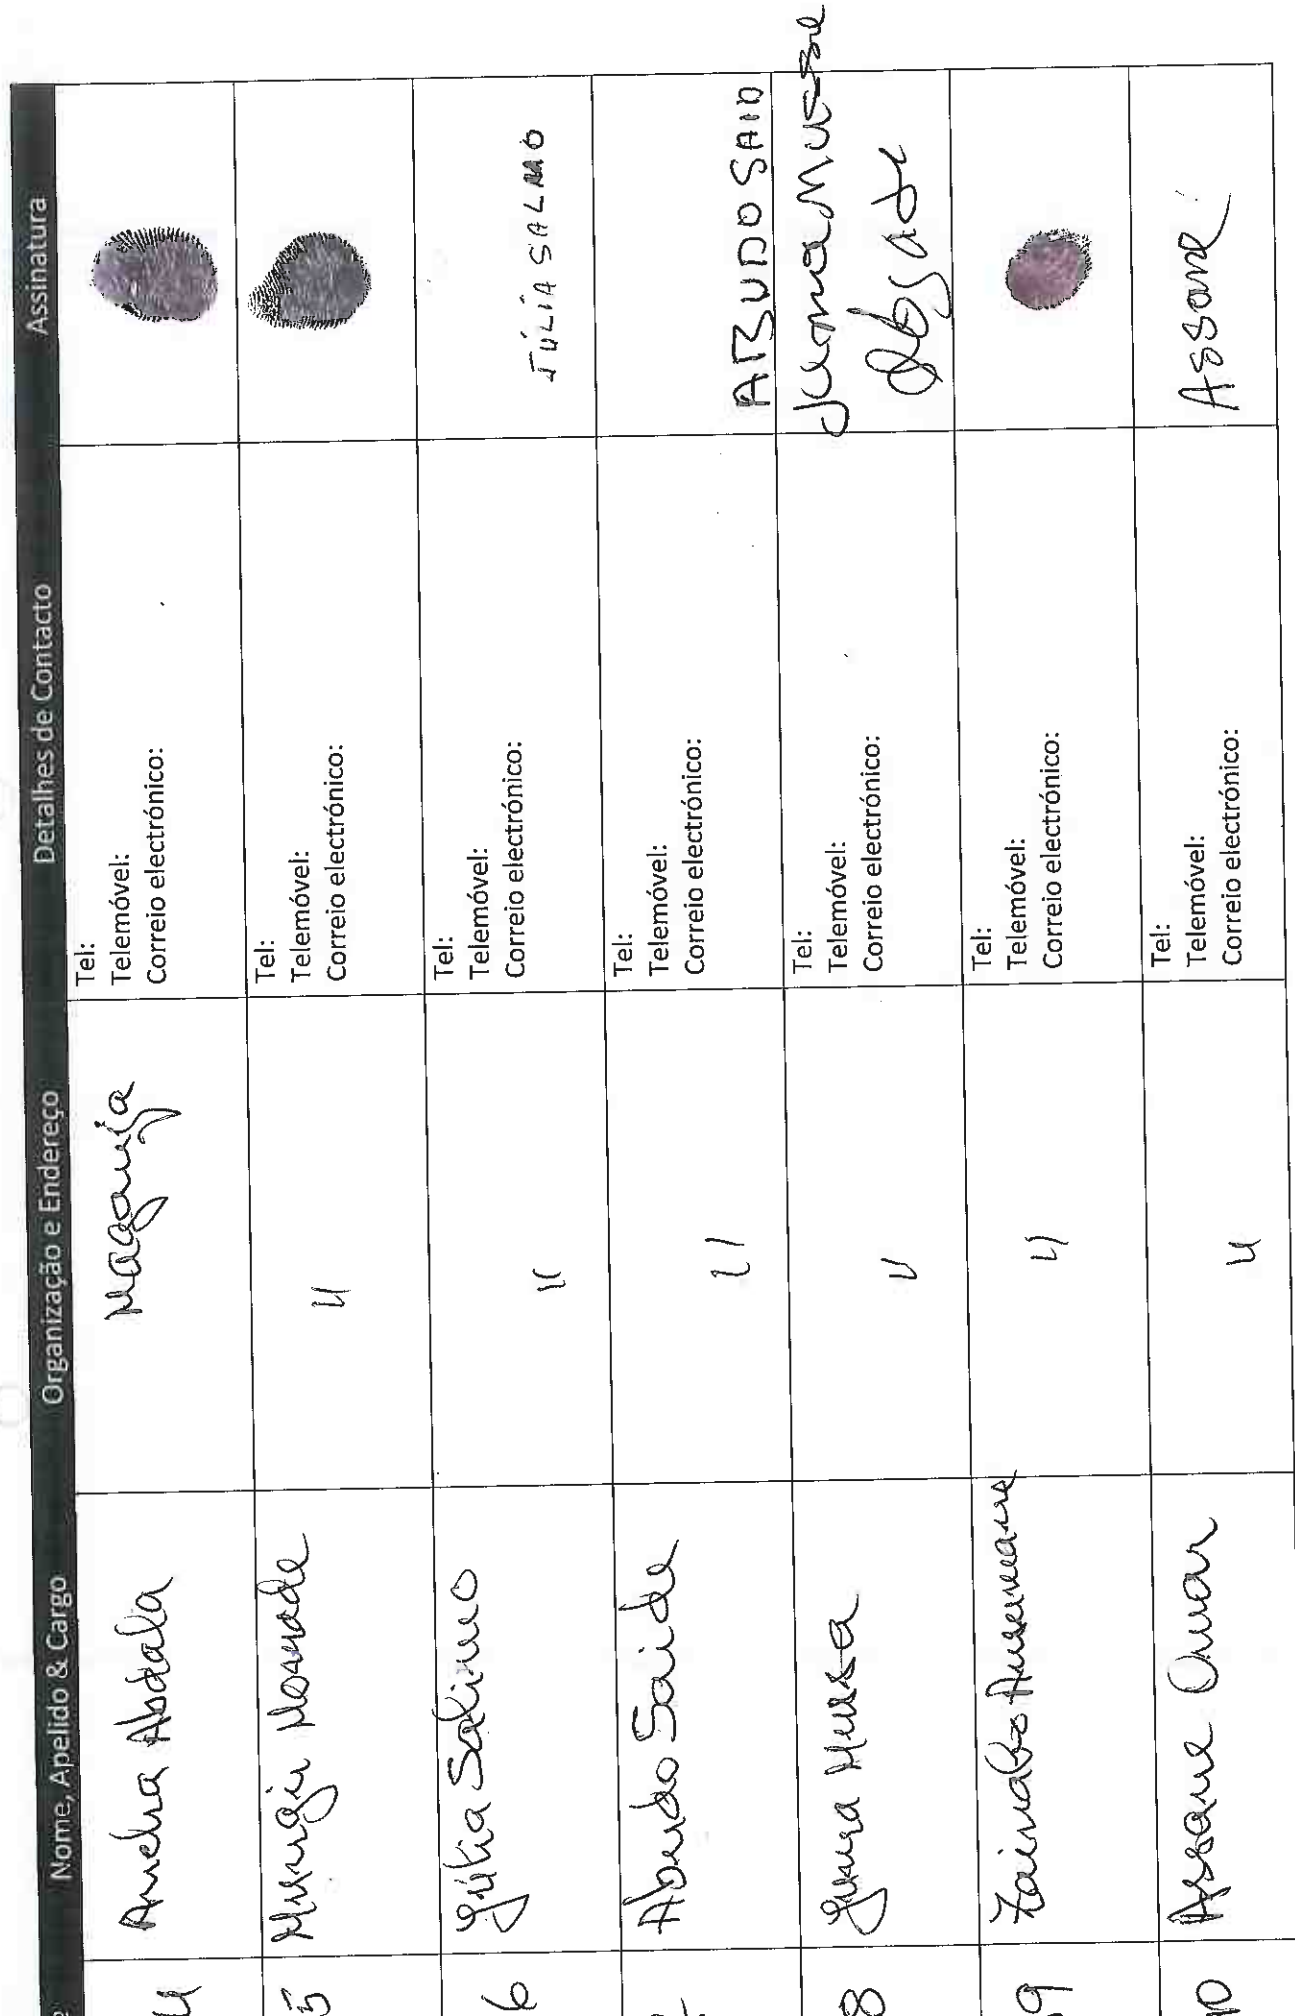 Nome, Apelido & Cargo Organização e Endereço Detalhes de Contacto Assinatura
4 Amelia Abdala
Tel:
Telemóvel:
Correio electrónico:
5
"
Tel:
Telemóvel:
Correio electrónico:
6 Júlia Salimo
"
Tel:
Telemóvel:
Correio electrónico:
JÚLIA SALMO
Abudo Saide
"
Tel:
Telemóvel:
Correio electrónico:
ABUDO SAID
8 Juma Mussa
"
Tel:
Telemóvel:
Correio electrónico:
9
"
Tel:
Telemóvel:
Correio electrónico:
10 Assane Omar
"
Tel:
Telemóvel:
Correio electrónico:
Assane